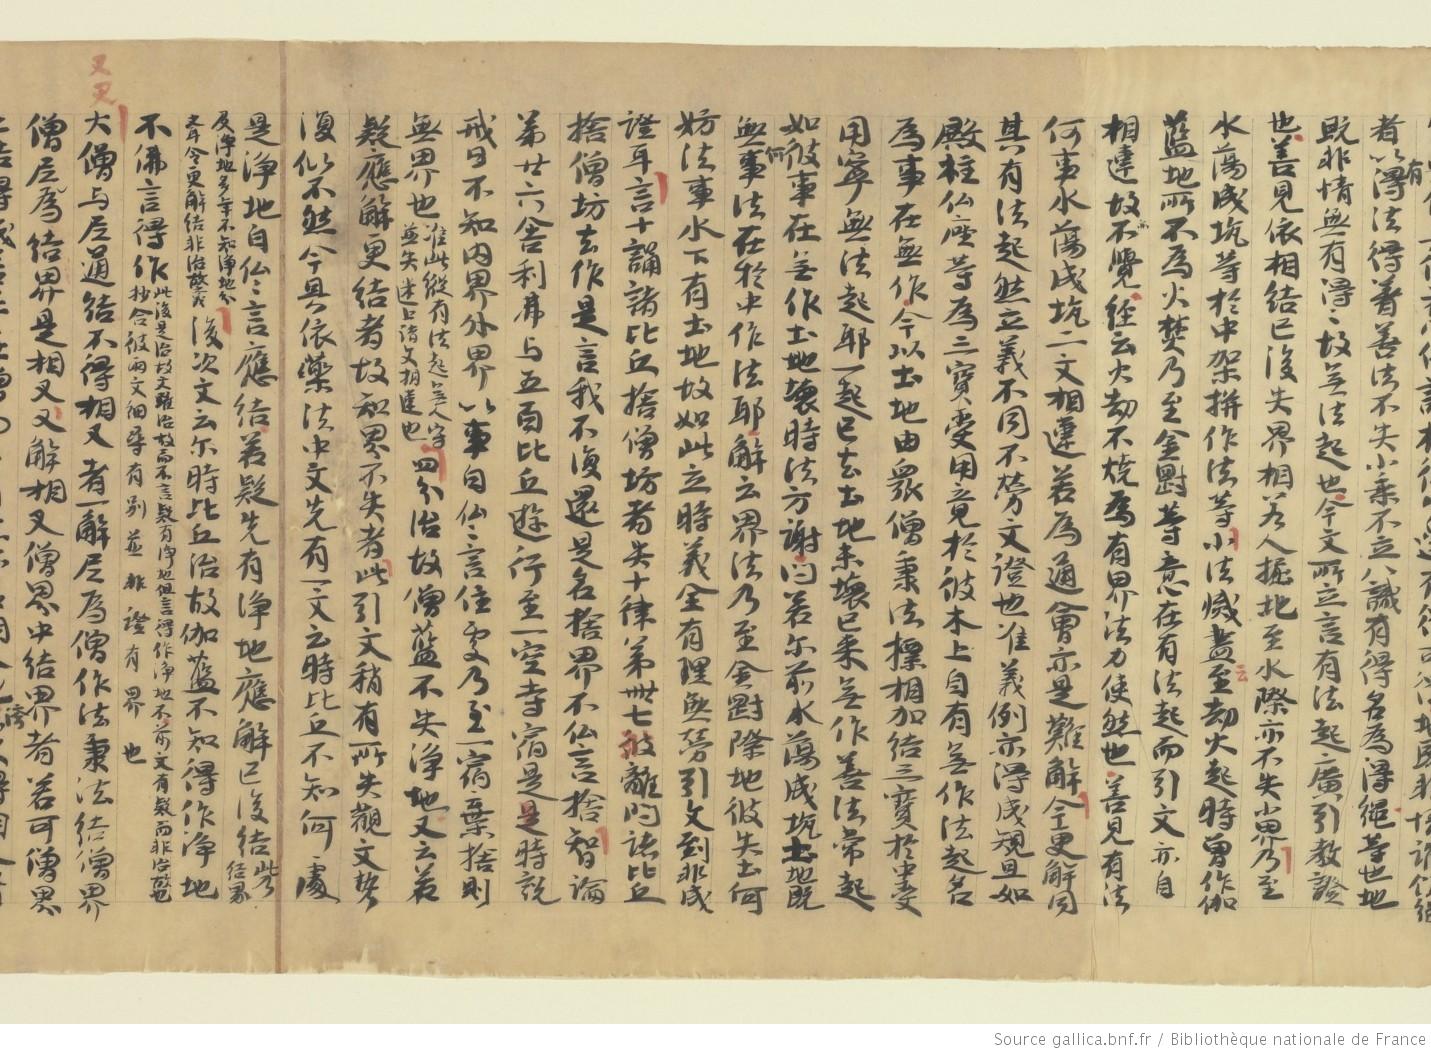 者以得法得著善法不失小乘不立八識有得名為得繩等世地
既非情無有得〻故無法起也今文所立言有法起廣引教證
也善見依相結已後失界相若人掘地至水際亦不失小界乃至
水蕩成坑等於中架拼作法等小法滅盡至劫火起時曾作伽
藍地所不為火焚乃至金對等意在有法起而引文亦自
相違故不覺經云大劫不燒為有界法力使然也善見有法
何事水蕩成坑二文相違若為通會亦是難解今更解同
其有法起然立義不同不勞文證也准義例亦得成規且如
殿柱仏座等為三寶受用竟於彼木上自有無作法起名
為事在無作今以土地由眾僧秉法標相加結三寶於中受
用寧無法起耶一起已去土地未壞已來無作善法常起
如彼事在無作土地壞時法方謝問若尔前水蕩成坑土地既
無事法在於中作法耶解云界法乃至金對際地彼失土何
妨法事水下有土地故如此立時義全有理無勞引文到非成
證耳言十誦諸比丘捨僧坊者失十律第卅七彼離問諸比丘
捨僧坊去作是言我不復還是名捨界不仏言捨智論
第廿六舍利弗与五百比丘遊行至一空寺宿是是時說
戒日不知內界外界以事白仏〻言住處乃至一宿棄捨則
無界也准此縱有法起無人守並失迷上諸文相違也四分治故僧藍不失淨地又云若
疑應解更結者故知界不失者此引文稍有所失觀文勢
復似不然今具依藥法中文先有一文云時比丘不知何處
是淨地白仏〻言應結若疑先有淨地應解已後結此乃結界
及淨地多年不知淨地分文耳令更解結非治故義後次文云尔時比丘治故伽藍不知得作淨地
不佛言得作此後是治故文雖治故而不言疑有淨地但言得作淨地不前文有疑而非治故也抄合彼兩文細尋有別並非證有界也
又界
大僧与尼通結不得相又者一解尼為僧作法秉法結僧界
僧尼為結界是相叉又解相叉僧界中結界者若可僧界